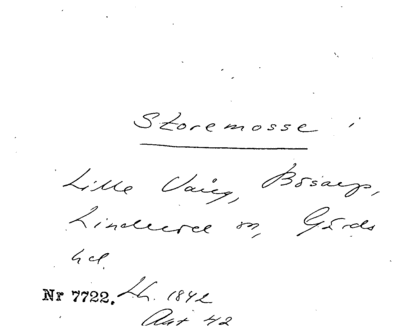 Storemosse i
Lille Vang, Bösarp,
Linderöd sn, Gärds
hd.
Nr 7722. Lh. 1842
Akt 42